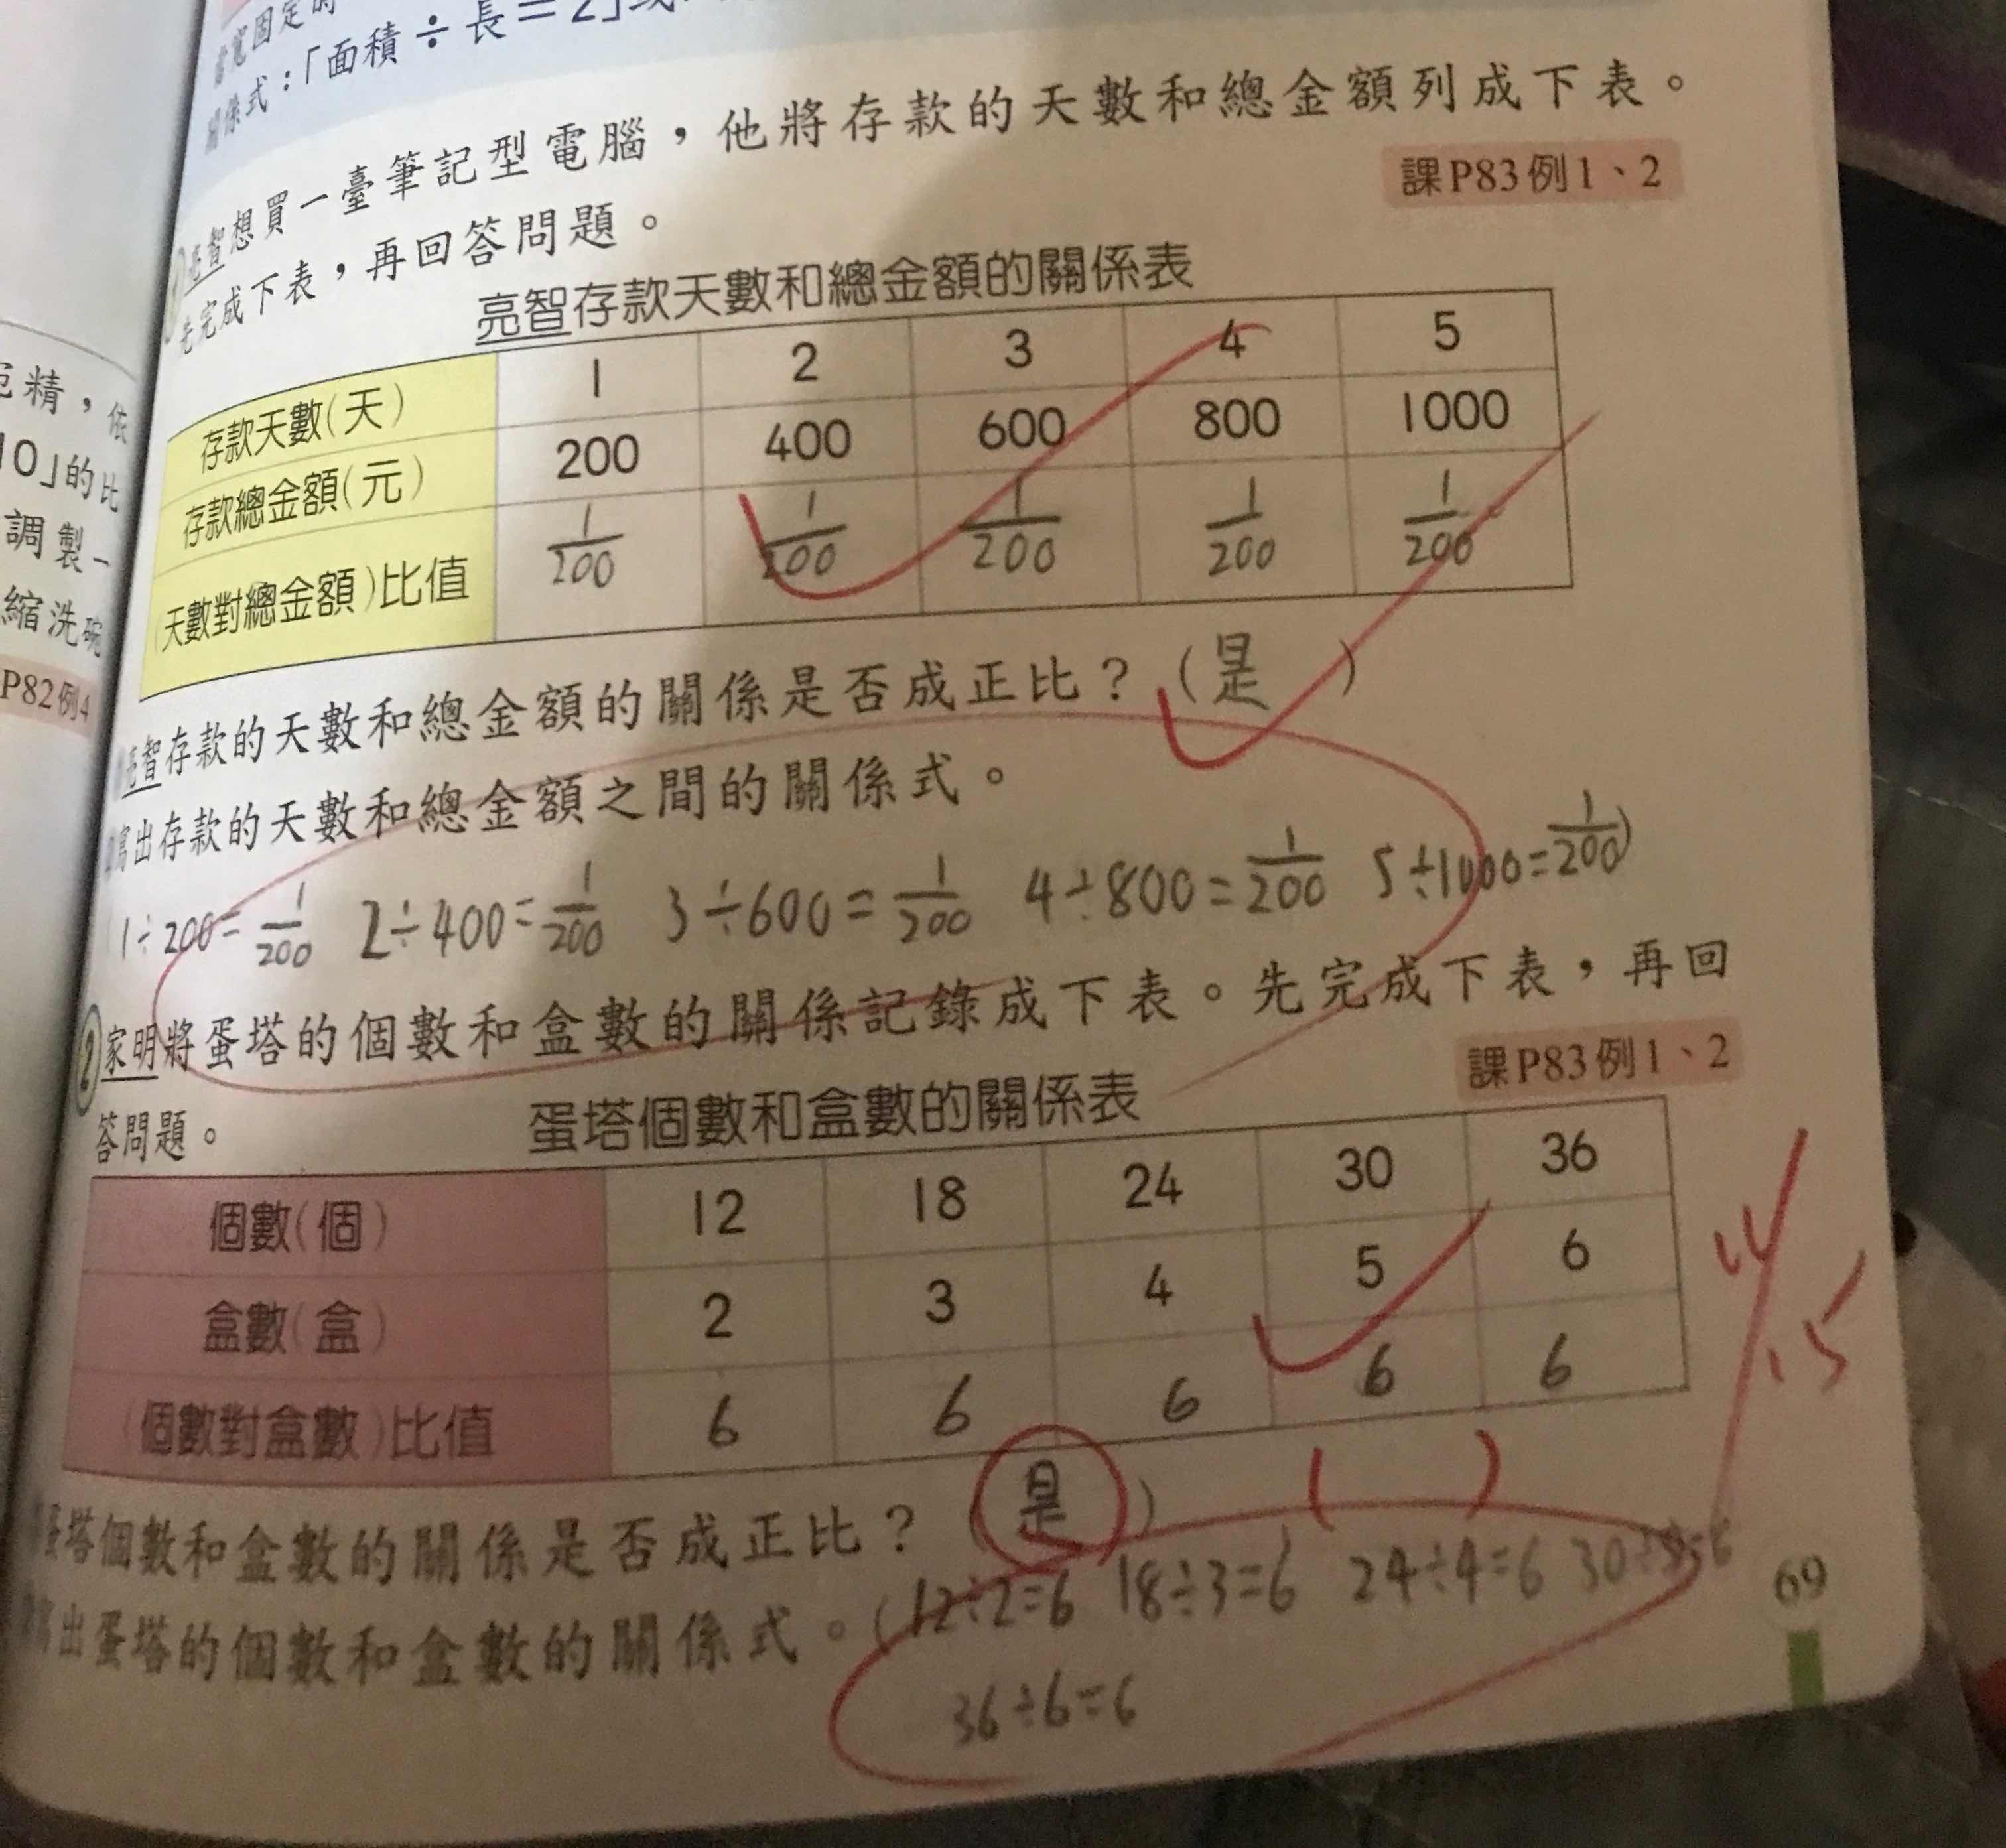 當寬固定時
關係式：「面積÷長＝2」或
亮智想買一臺筆記型電腦，他將存款的天數和總金額列成下表。
先完成下表，再回答問題。
課P83例1、2
亮智存款天數和總金額的關係表
存款天數(天) 1 2 3 4 5
存款總金額(元) 200 400 600 800 1000
(天數對總金額)比值 1/200 1/200 1/200 1/200 1/200
亮智存款的天數和總金額的關係是否成正比？(是)
寫出存款的天數和總金額之間的關係式。
(1÷200=1/200 2÷400=1/200 3÷600=1/200 4÷800=1/200 5÷1000=1/200)
2 家明將蛋塔的個數和盒數的關係記錄成下表。先完成下表，再回
答問題。
課P83例1、2
蛋塔個數和盒數的關係表
個數(個) 12 18 24 30 36
盒數(盒) 2 3 4 5 6
(個數對盒數)比值 6 6 6 6 6
蛋塔個數和盒數的關係是否成正比？(是) ( )
寫出蛋塔的個數和盒數的關係式。(12÷2=6 18÷3=6 24÷4=6 30÷5=6
36÷6=6
69
精，依
10」的比
調製一
縮洗碗
P82例4